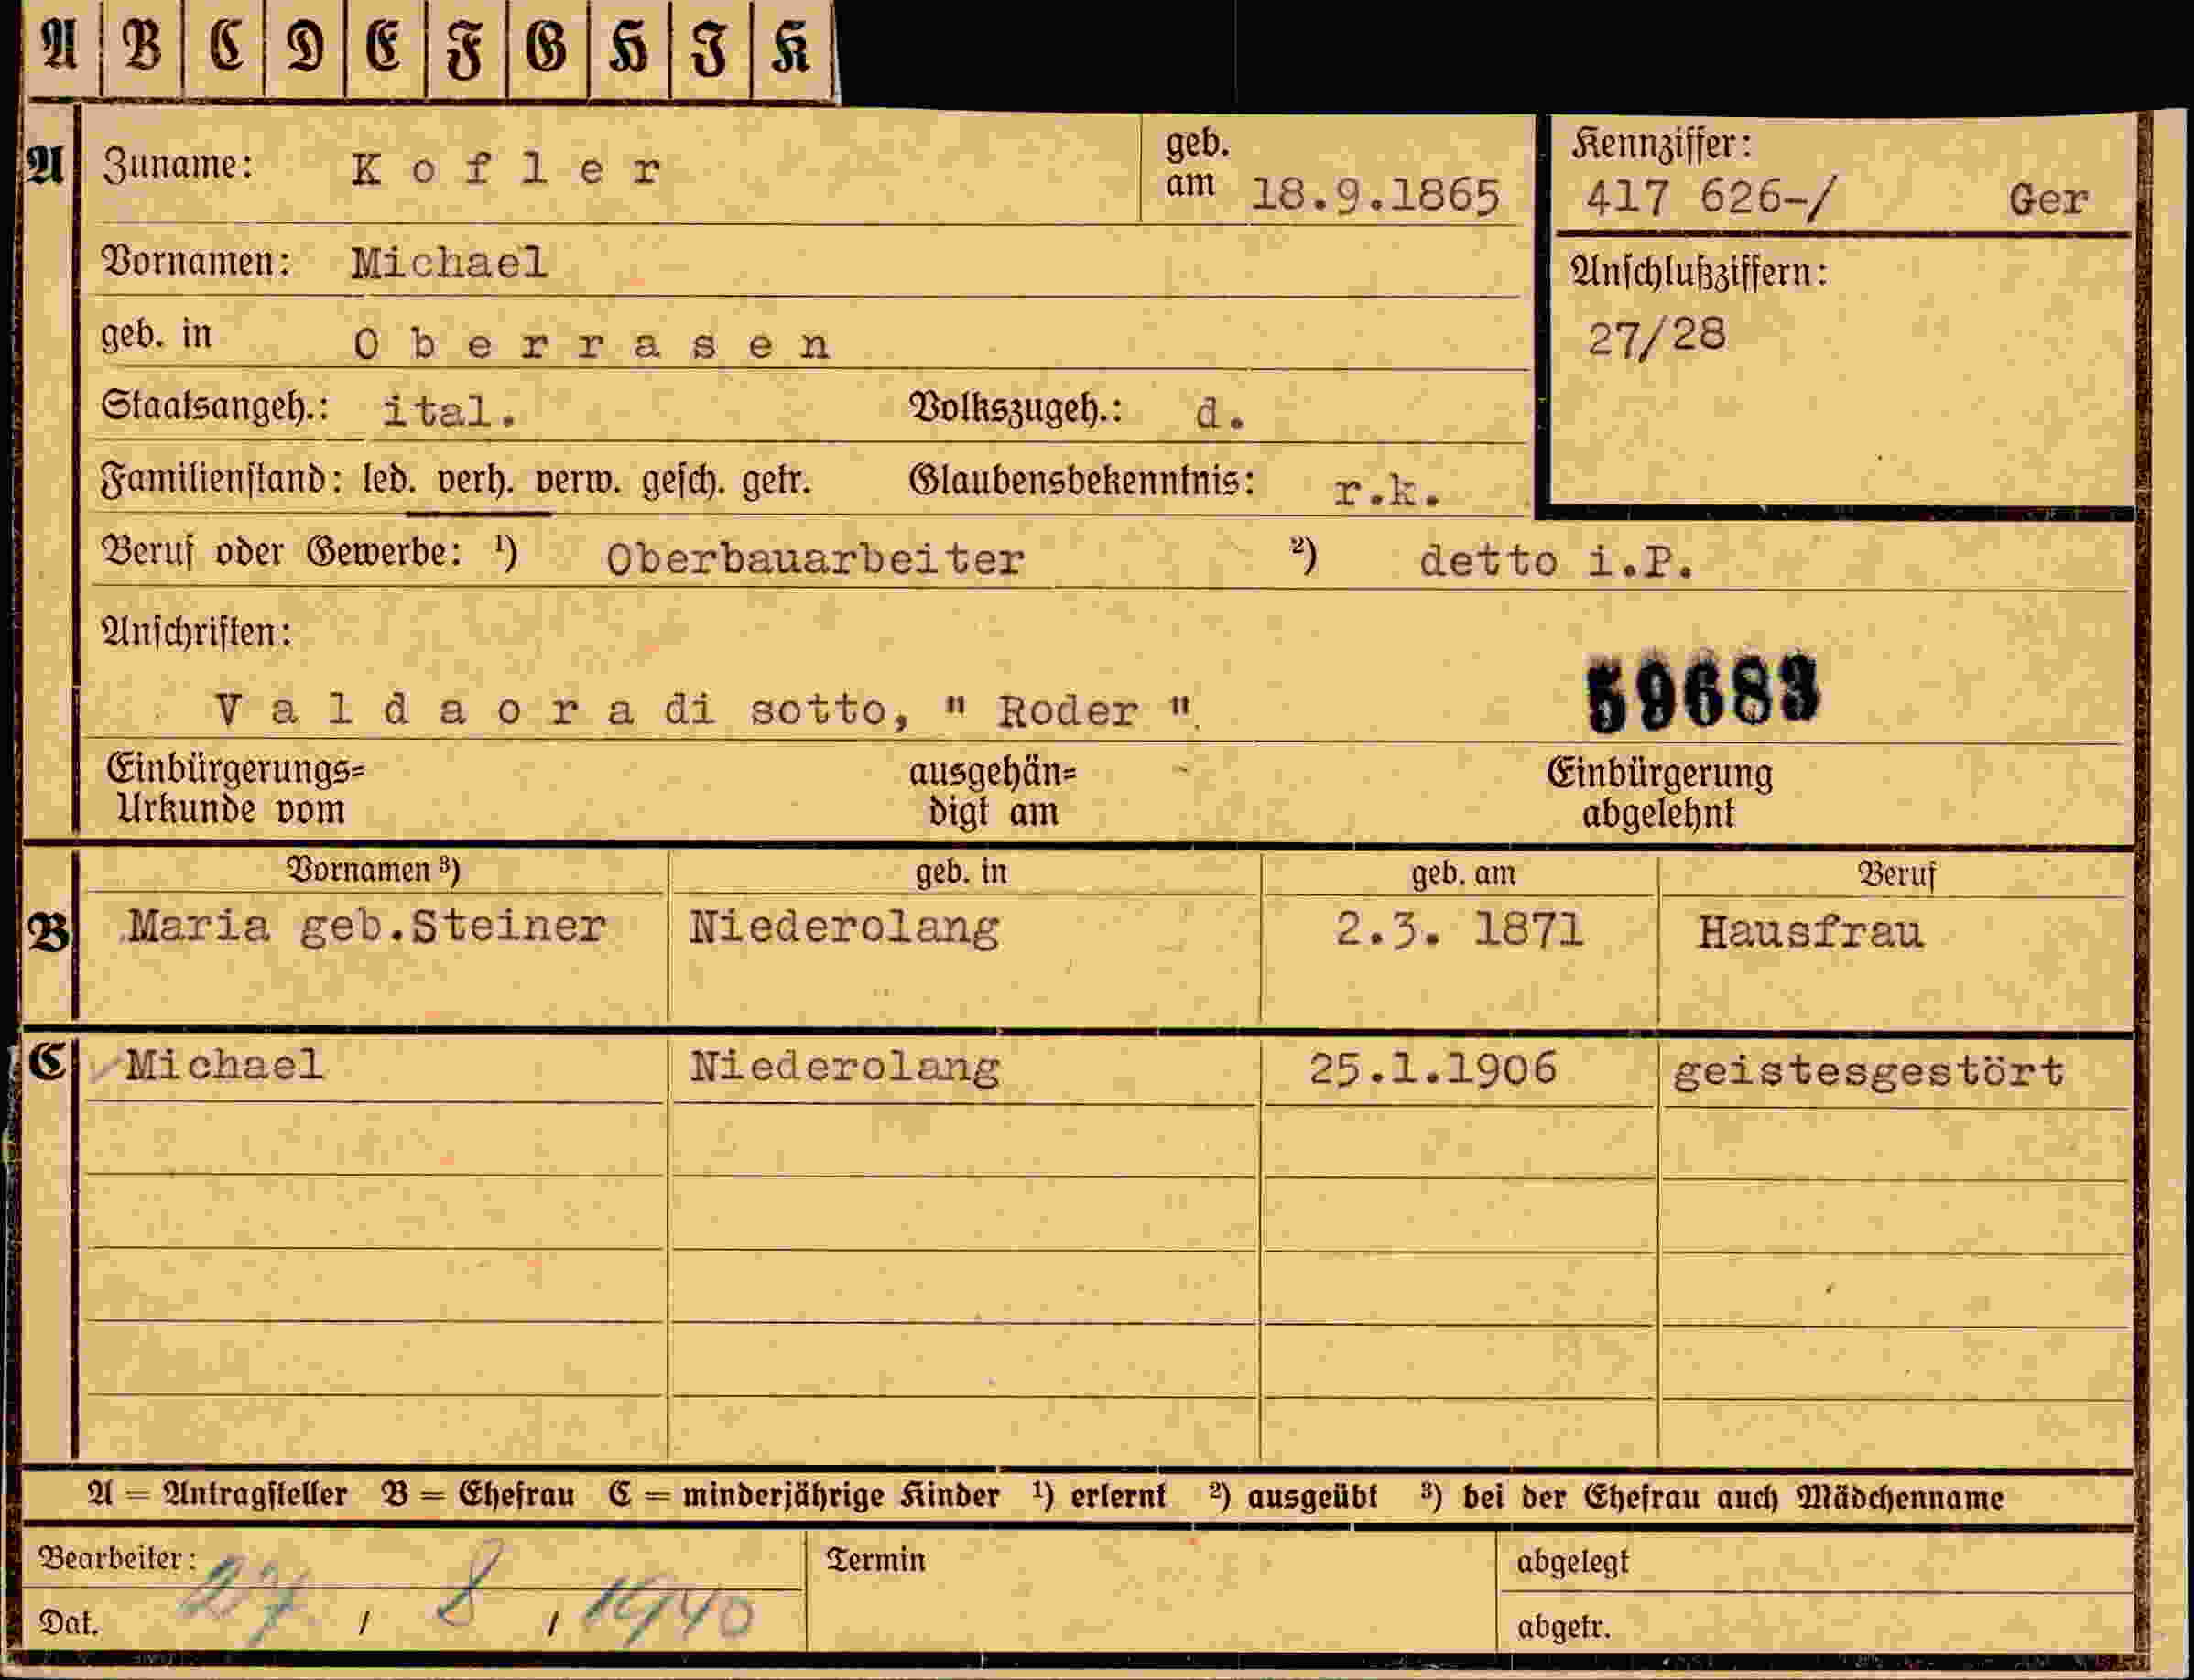 A B C D E F G H J K
A Zuname: K o f l e r geb. am 18.9.1865
Kennziffer:
417 626-/ Ger
Vornamen: Michael
Anschlußziffern:
27/28
geb. in O b e r r a s e n
Staatsangeh.: ital. Volkszugeh.: d.
Familienstand: led. verh. verw. gesch. getr. Glaubensbekenntnis: r.k.
Beruf oder Gewerbe: ¹) Oberbauarbeiter ²) detto i.P.
Anschriften:
V a l d a o r a di sotto, " Roder " 59683
Einbürgerungs= ausgehän= Einbürgerung
Urkunde vom digt am abgelehnt
Vornamen ³) geb. in geb. am Beruf
B Maria geb.Steiner Niederolang 2.3. 1871 Hausfrau
C Michael Niederolang 25.1.1906 geistesgestört
A = Antragsteller B = Ehefrau C = minderjährige Kinder ¹) erlernt ²) ausgeübt ³) bei der Ehefrau auch Mädchenname
Bearbeiter: Termin abgelegt
Dat. 27 / 8 / 1940 abgetr.